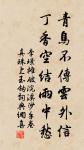 青鳥不傳雲外信
丁香空結雨中愁
李璟攤破浣溪沙手卷
真珠上玉鉤詞與爛嘉